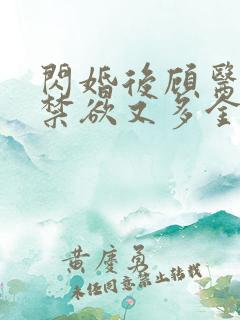 閃婚後顾醫
禁欲又多金
黄慶勇
未经同意禁止转载